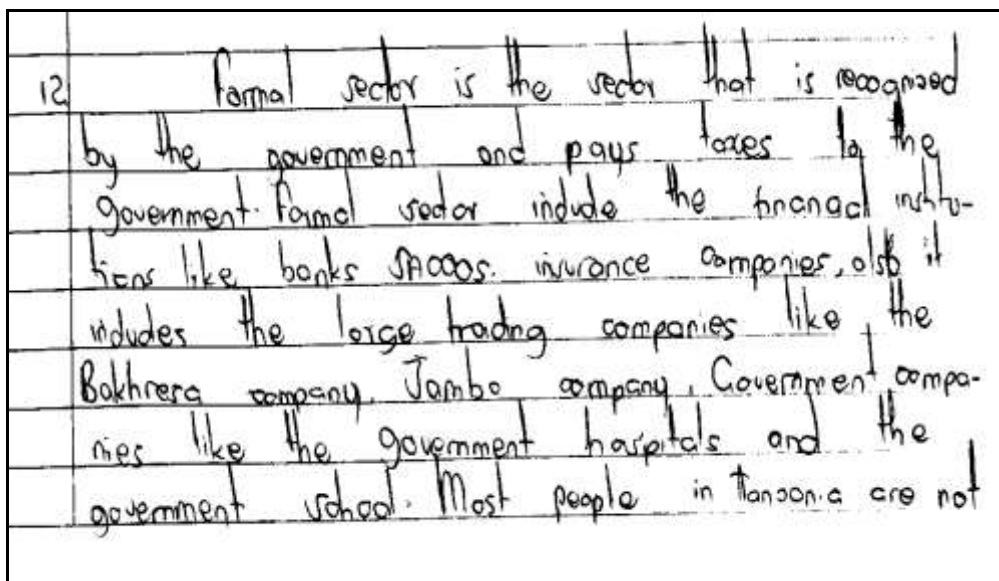 12 Formal sector is the sector that is recognized
by the government and pays taxes to the
government. Formal sector include the financial institu-
tions like banks SACCOS. insurance companies, also it
includes the large trading companies like, the
Bakhresa company, Jambo company, Government compa-
nies like the government hospitals and the
government school. Most people in Tanzania are not